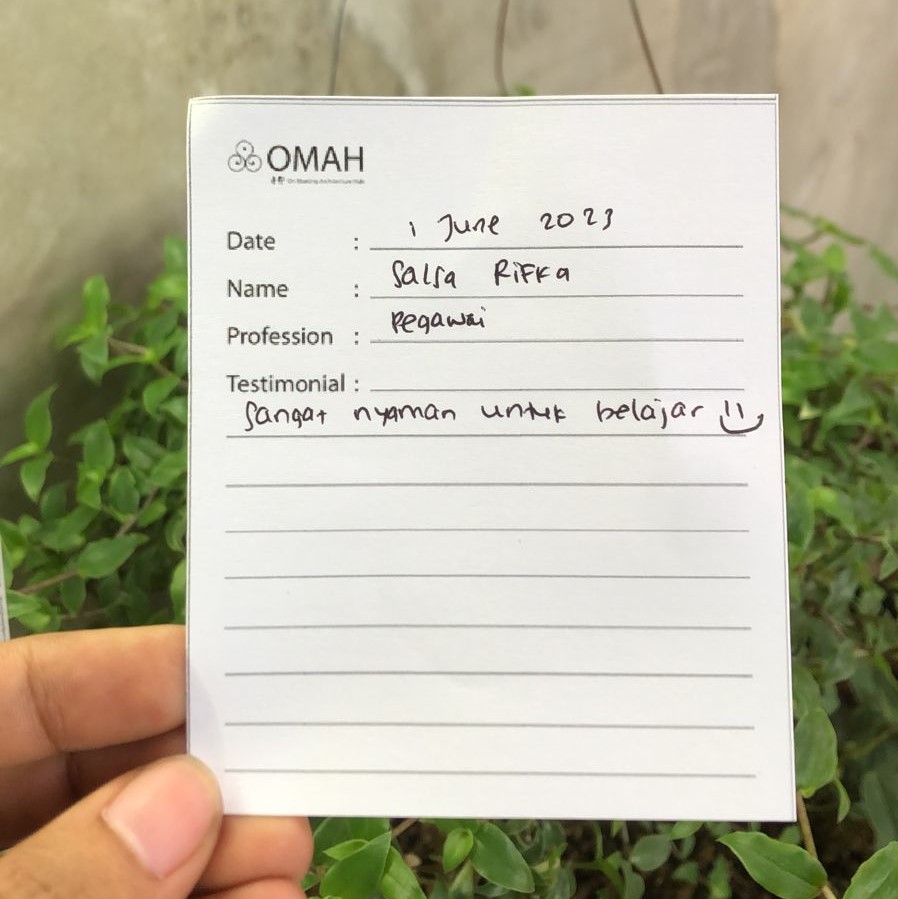 OMAH
Date : 1 June 2023
Name : Salsa Rifka
Profession : Pegawai
Testimonial :
Sangat nyaman untuk belajar